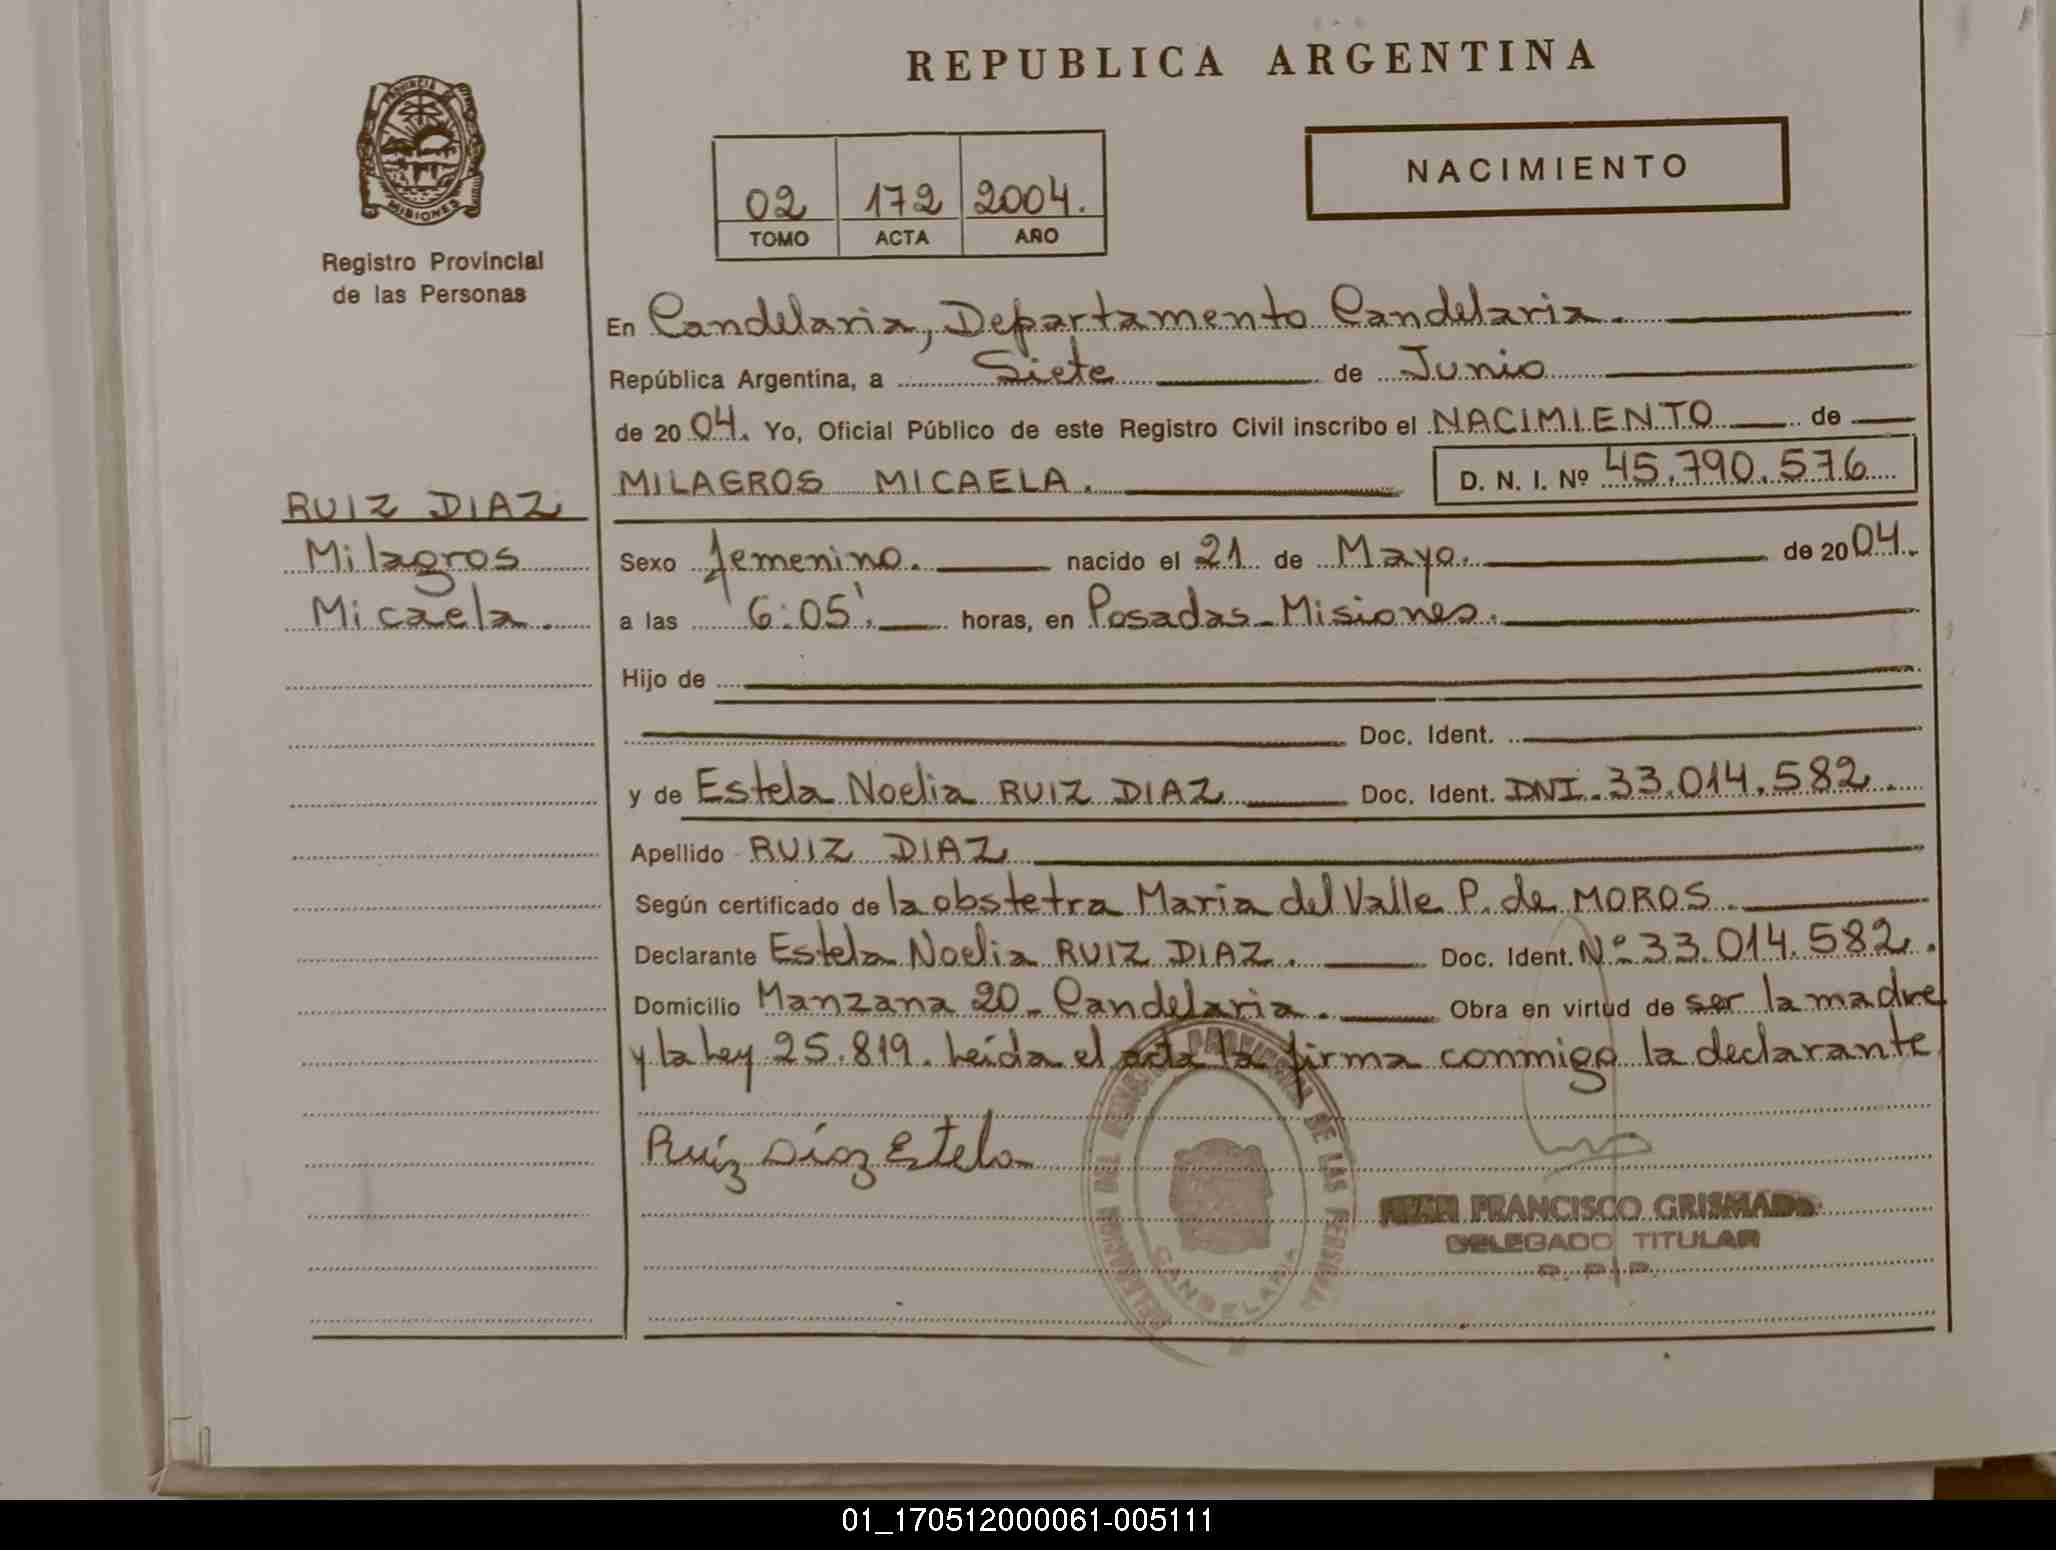 REPUBLICA ARGENTINA
PROVINCIA DE
MISIONES
Registro Provincial
de las Personas
NACIMIENTO
02 172 2004.
TOMO ACTA AÑO
En Candelaria, Departamento Candelaria.
República Argentina, a Siete de Junio
de 2004. Yo, Oficial Público de este Registro Civil inscribo el NACIMIENTO de
MILAGROS MICAELA. D. N. I. Nº 45.790.576
RUIZ DIAZ
Milagros
Micaela.
Sexo femenino. nacido el 21 de Mayo. de 2004.
a las 6:05'. horas, en Posadas-Misiones.
Hijo de
Doc. Ident.
y de Estela Noelia RUIZ DIAZ Doc. Ident. DNI. 33.014.582.
Apellido RUIZ DIAZ
Según certificado de la obstetra Maria del Valle P. de MOROS.
Declarante Estela Noelia RUIZ DIAZ. Doc. Ident. Nº 33.014.582.
Domicilio Manzana 20 - Candelaria. Obra en virtud de ser la madre
y la ley 25.819. Leída el acta la firma conmigo la declarante
Ruíz Díaz Estela
PROVINCIAL DE LAS PERSONAS
CANDELARIA
FRANCISCO GRISMADO
DELEGADO TITULAR
R. P. P.
01_170512000061-005111